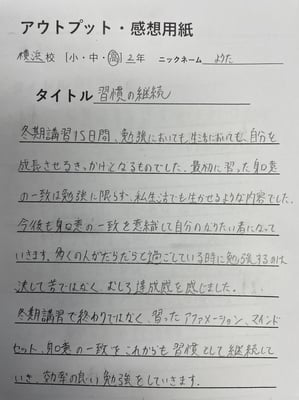 アウトプット・感想用紙
横浜校 [小・中・高] 2年 ニックネーム ようた
タイトル 習慣の継続
冬期講習15日間、勉強においても、生活においても、自分を
成長させるきっかけとなるものでした。最初に習った身口意
の一致は勉強に限らず、私生活でも生かせるような内容でした。
今後も身口意の一致を意識して自分のなりたい者になって
いきます。多くの人がだらだらと過ごしている時に勉強するのは
決して苦ではなく、むしろ達成感を感じました。
冬期講習で終わりではなく、習ったアファメーション、マインド
セット、身口意の一致をこれからも習慣として継続して
いき、効率の良い勉強をしていきます。